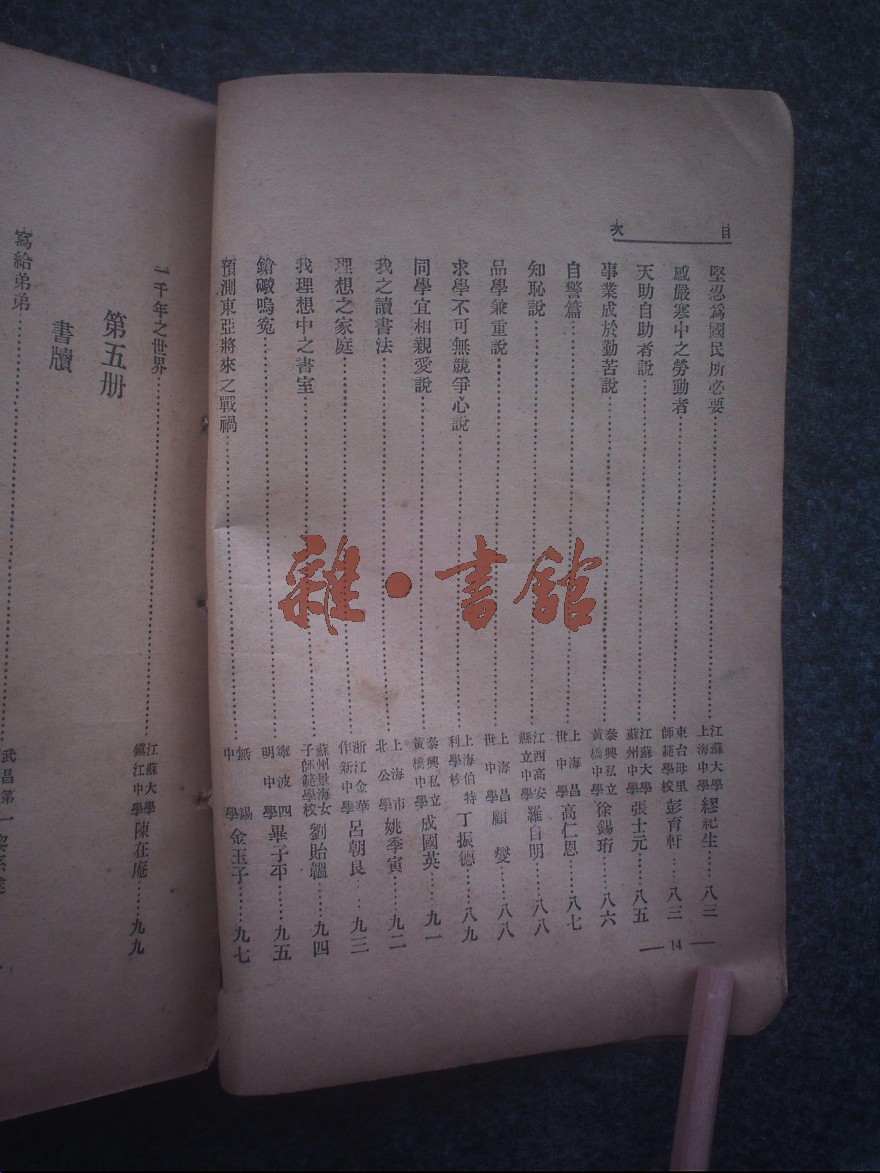 目次
堅忍爲國民所必要……江蘇大學上海中學繆祀生……八三
感嚴寒中之勞動者……東台母里師範學校彭育軒……八三
天助自助者說……江蘇大學蘇州中學張士元……八五
事業成於勤苦說……泰興私立黃橋中學徐錫珩……八六
自警篇……上海昌世中學高仁恩……八七
知恥說……江西高安縣立中學羅自明……八八
品學兼重說……上海昌世中學顧燮……八八
求學不可無競爭心說……上海伯特利學校丁振德……八九
同學宜相親愛說……泰興私立黃橋中學成國英……九一
我之讀書法……上海市北公學姚季寅……九二
理想之家庭……浙江金華作新中學呂朝良……九三
我理想中之書室……蘇州景海女子師範學校劉貽韞……九四
鎗礮嗚冤……寧波四明中學畢子平……九五
預測東亞將來之戰禍……無錫中學金玉子……九七
14
一千年之世界……江蘇大學鎮江中學陳在庵……九九
第五册
書牘
寫給弟弟……武昌第一
雜·書館